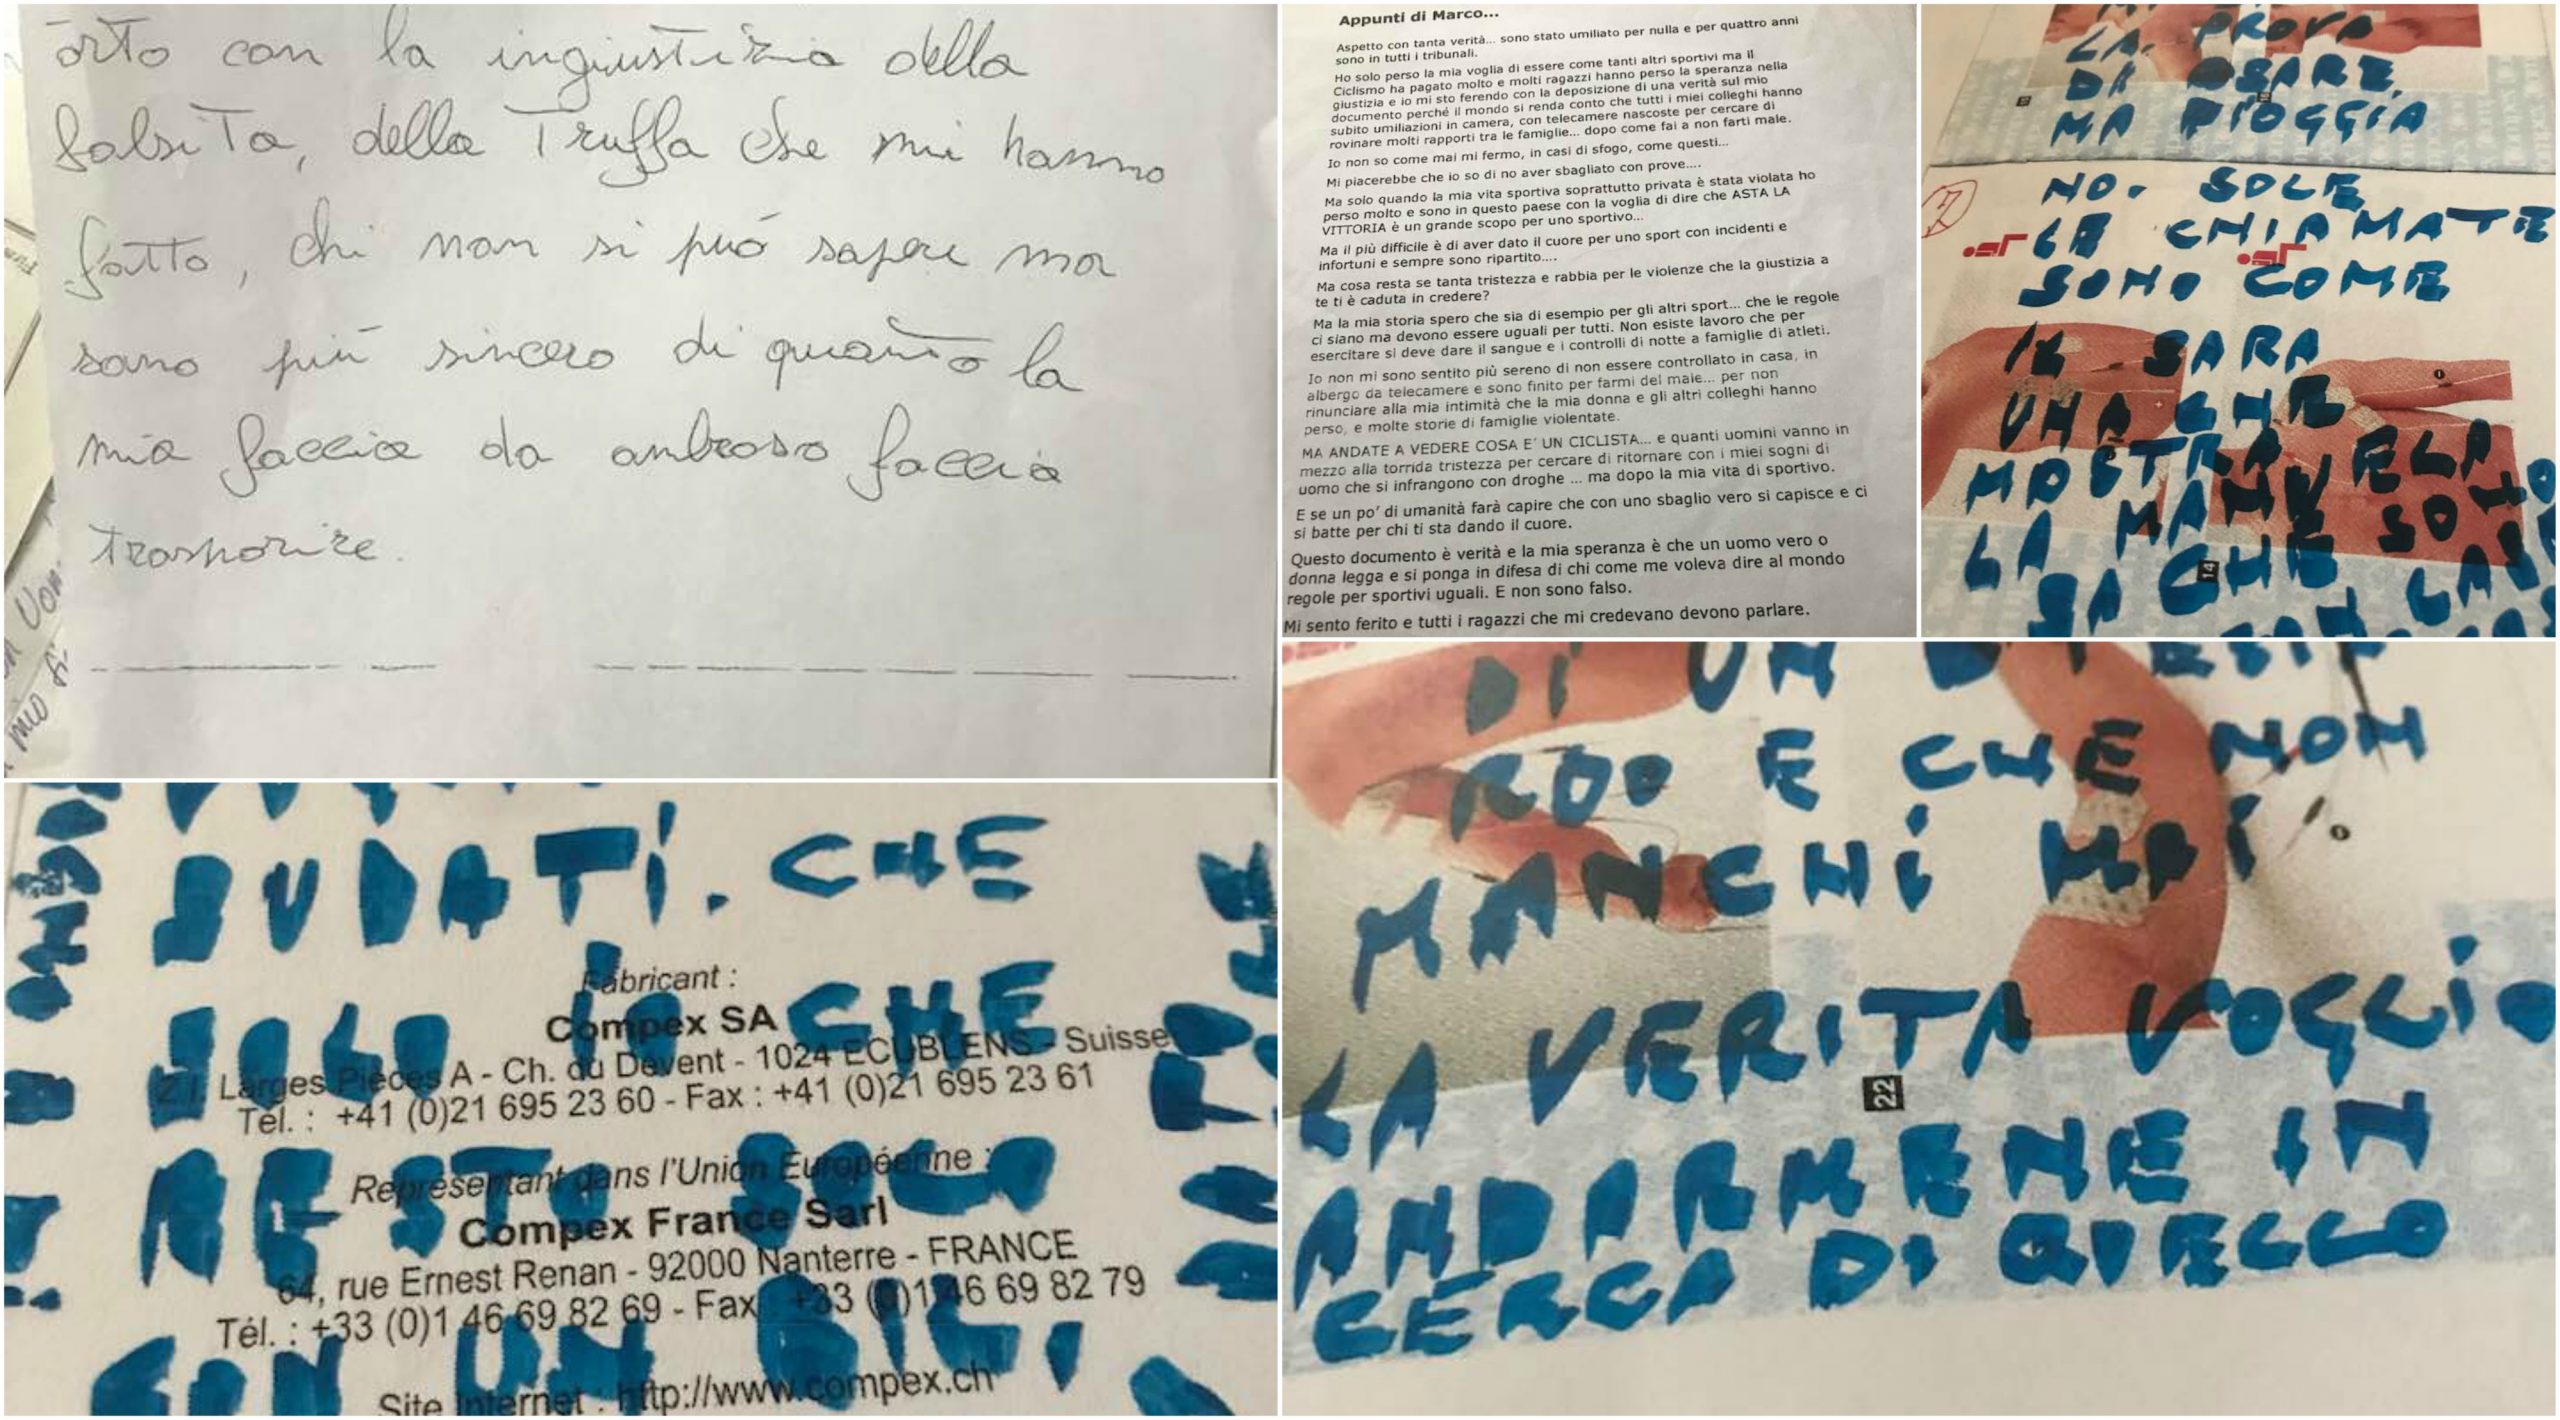 orto con la ingiustizia della
falsità, della Truffa che mi hanno
fatto, chi non si può sapere ma
sono più sincero di quanto la
mia faccia da ombroso faccia
trasparire.
mio
Appunti di Marco...
Aspetto con tanta verità... sono stato umiliato per nulla e per quattro anni
sono in tutti i tribunali.
Ho solo perso la mia voglia di essere come tanti altri sportivi ma il
Ciclismo ha pagato molto e molti ragazzi hanno perso la speranza nella
giustizia e io mi sto ferendo con la deposizione di una verità sul mio
documento perché il mondo si renda conto che tutti i miei colleghi hanno
subito umiliazioni in camera, con telecamere nascoste per cercare di
rovinare molti rapporti tra le famiglie... dopo come fai a non farti male.
Io non so come mai mi fermo, in casi di sfogo, come questi...
Mi piacerebbe che io so di no aver sbagliato con prove....
Ma solo quando la mia vita sportiva soprattutto privata è stata violata ho
perso molto e sono in questo paese con la voglia di dire che ASTA LA
VITTORIA è un grande scopo per uno sportivo...
Ma il più difficile è di aver dato il cuore per uno sport con incidenti e
infortuni e sempre sono ripartito....
Ma cosa resta se tanta tristezza e rabbia per le violenze che la giustizia a
te ti è caduta in credere?
Ma la mia storia spero che sia di esempio per gli altri sport... che le regole
ci siano ma devono essere uguali per tutti. Non esiste lavoro che per
esercitare si deve dare il sangue e i controlli di notte a famiglie di atleti.
Io non mi sono sentito più sereno di non essere controllato in casa, in
albergo da telecamere e sono finito per farmi del male... per non
rinunciare alla mia intimità che la mia donna e gli altri colleghi hanno
perso, e molte storie di famiglie violentate.
MA ANDATE A VEDERE COSA E' UN CICLISTA... e quanti uomini vanno in
mezzo alla torrida tristezza per cercare di ritornare con i miei sogni di
uomo che si infrangono con droghe ... ma dopo la mia vita di sportivo.
E se un po' di umanità farà capire che con uno sbaglio vero si capisce e ci
si batte per chi ti sta dando il cuore.
Questo documento è verità e la mia speranza è che un uomo vero o
donna legga e si ponga in difesa di chi come me voleva dire al mondo
regole per sportivi uguali. E non sono falso.
Mi sento ferito e tutti i ragazzi che mi credevano devono parlare.
LA PROVA
DA OSARE,
MA PIOGGIA
NO. SOLE
LE CHIAMATE
SONO COME
SARA
UNA CHE
MOSTRA
LA MANUELA
SA CHE SOLO
14
SUDATI. CHE
SOLO IO CHE
RESTO SOLO
CON UN
Fabricant :
Compex SA
Z.I. Larges Pièces A - Ch. du Devent - 1024 ECUBLENS - Suisse
Tél. : +41 (0)21 695 23 60 - Fax : +41 (0)21 695 23 61
Représentant dans l'Union Européenne :
Compex France Sarl
64, rue Ernest Renan - 92000 Nanterre - FRANCE
Tél. : +33 (0)1 46 69 82 69 - Fax : +33 (0)1 46 69 82 79
Site Internet : http://www.compex.ch
DI UN
E CHE NON
MANCHI MAI
LA VERITA VOGLIO
22
ANDARMENE IN
CERCA DI QUELLO